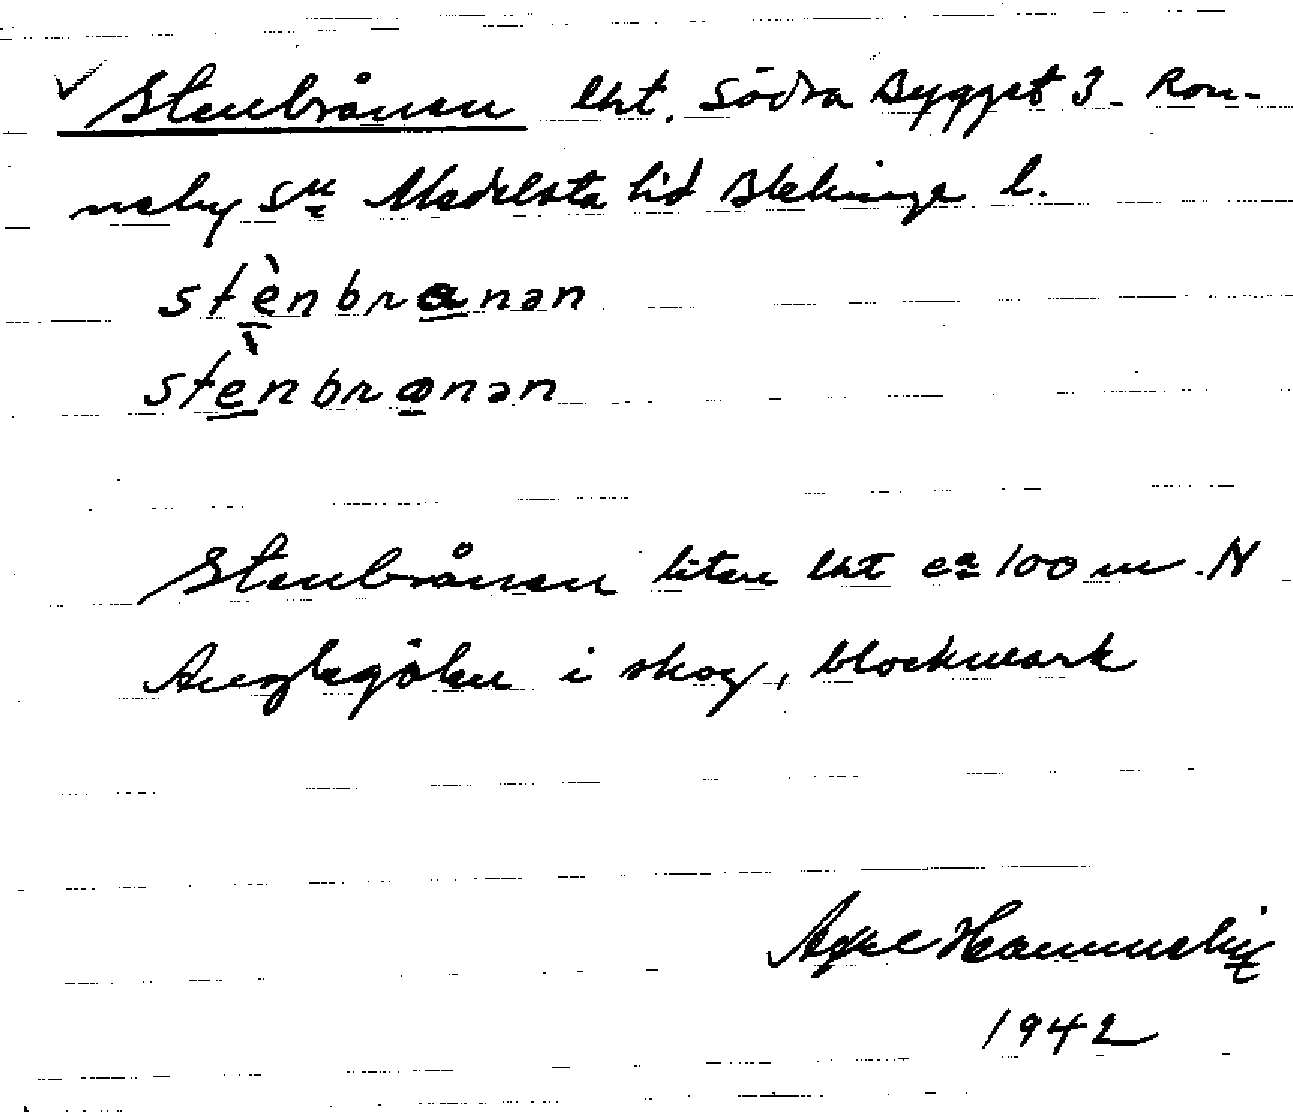 Stenbrånen lht. Södra Bygget 3. Ron-
neby sn Medelsta hd Blekinge l.
stènbranən
stènbrɑnən
Stenbrånen liten lht ca 100 m N
i skog, blockmark
Axel
1942